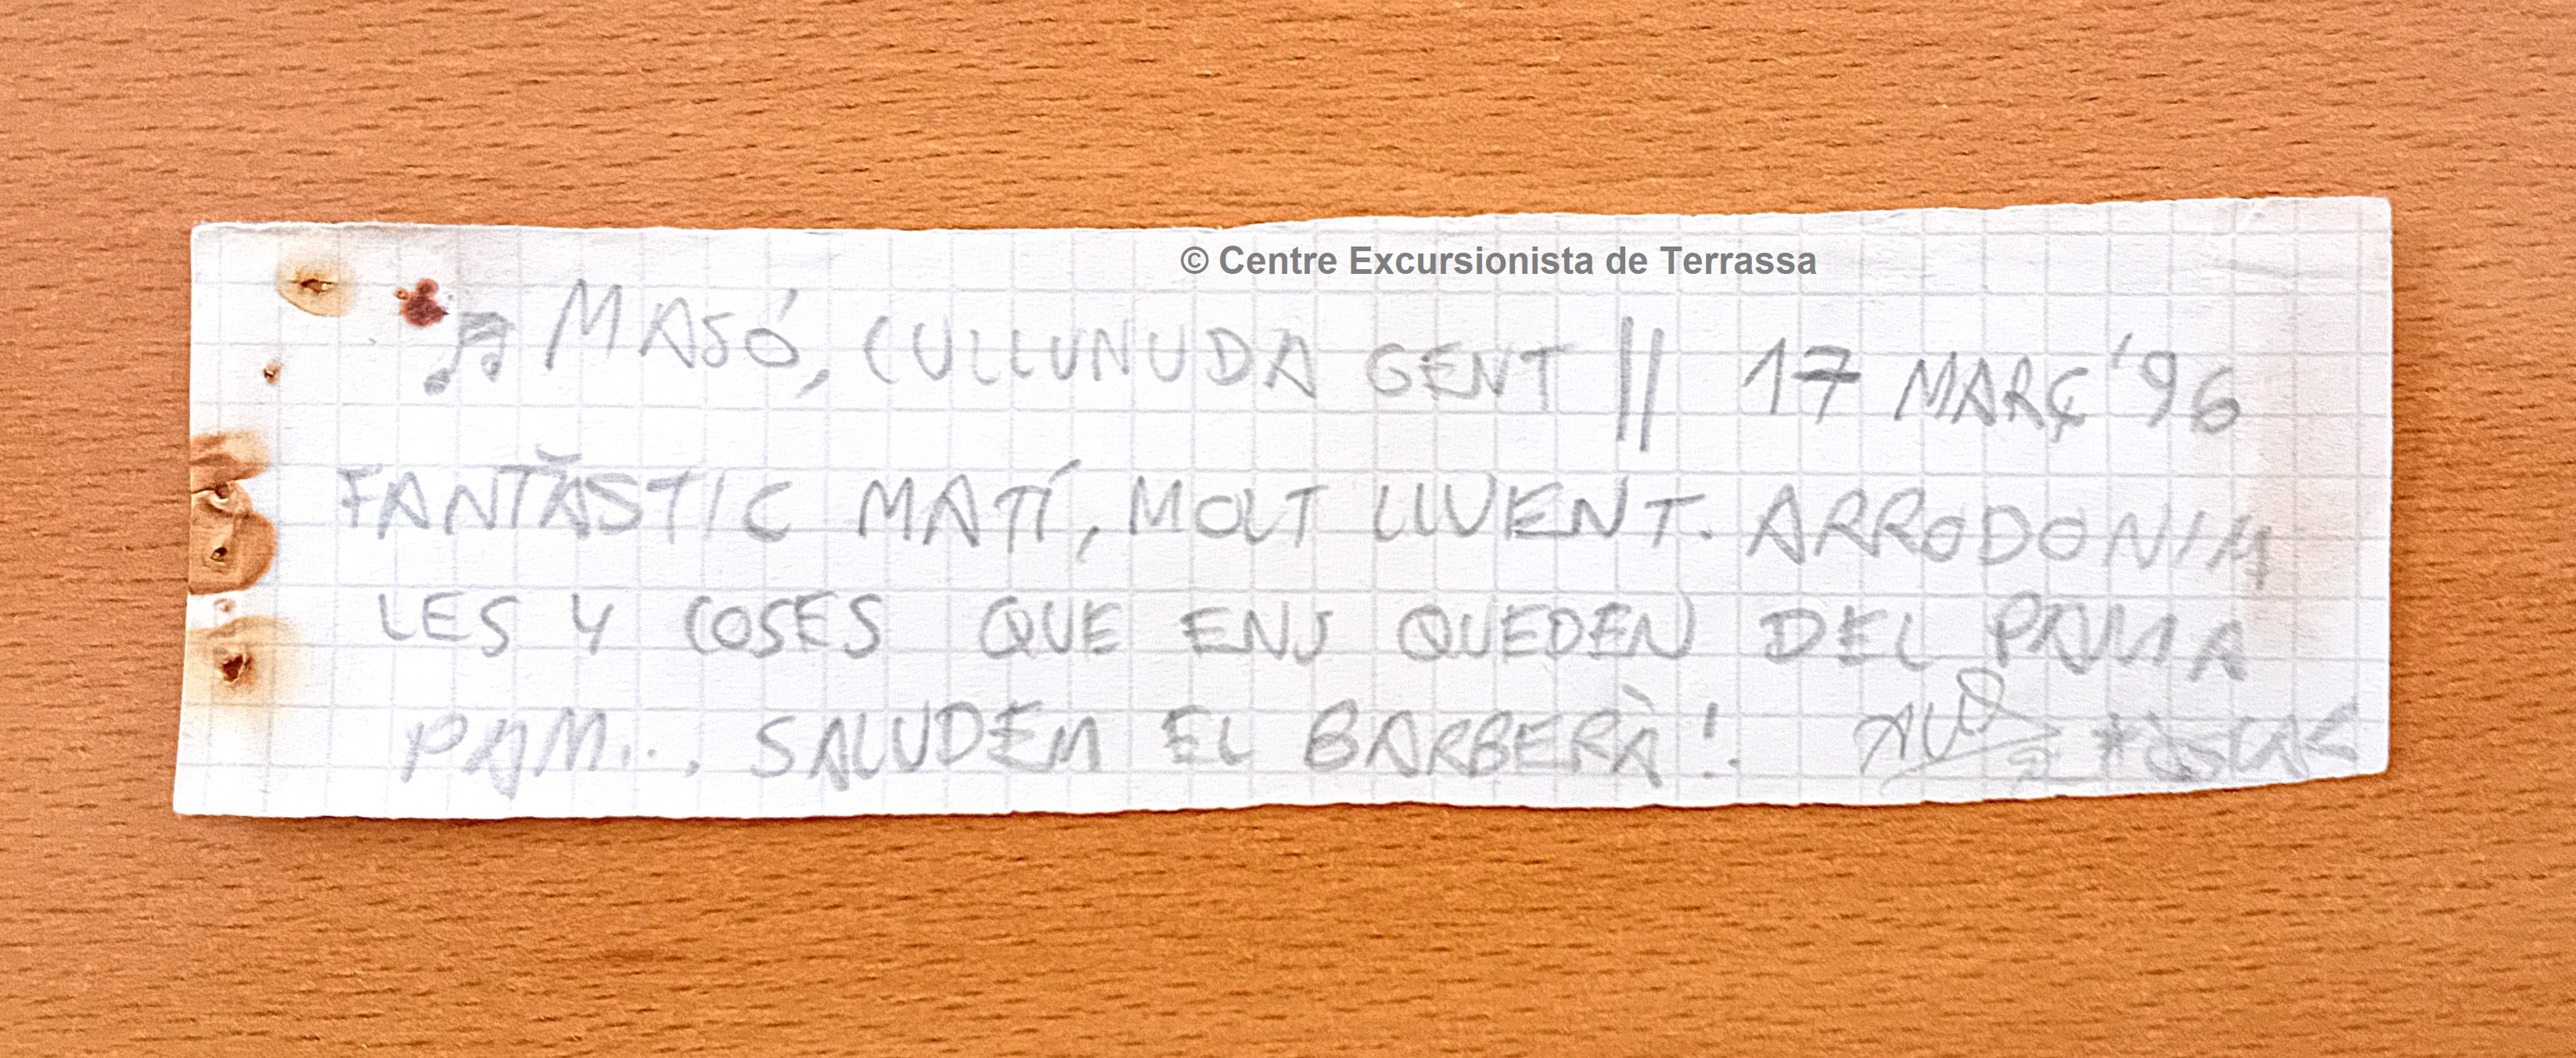 © Centre Excursionista de Terrassa
♫ MASÓ, CULLUNUDA GENT || 17 MARÇ '96
FANTĂSTIC MATÍ, MOLT LLUENT. ARRODONIM
LES 4 COSES QUE ENS QUEDEN DEL PAM A
PAM... SALUDEM EL BARBERÀ!